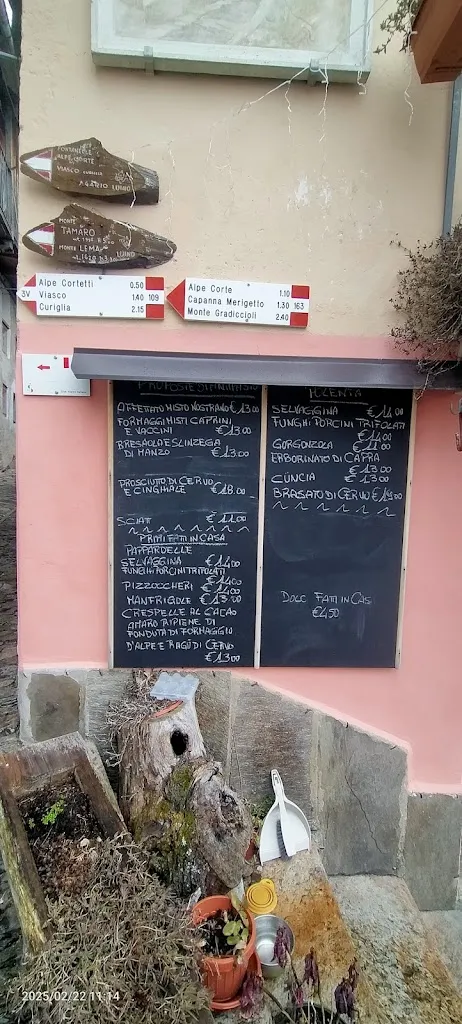 ALPE CORTE
VIASCO
TAMARO
MONTE LEMA
Alpe Cortetti 0.50
3V Viasco 1.40 109
Curiglia 2.15
Alpe Corte 1.10
Capanna Merigetto 1.30 163
Monte Gradiccioli 2.40
AFFETTATO MISTO NOSTRANO €13.00
FORMAGGI MISTI CAPRINI
E VACCINI €13.00
BRESAOLA E SLINZEGA
DI MANZO €13.00
PROSCIUTTO DI CERVO
E CINGHIALE €18.00
SCIATT €11.00
PRIMI FATTI IN CASA
PAPPARDELLE
SELVAGGINA €14.00
FUNGHI PORCINI TRIFOLATI
€14.00
PIZZOCCHERI €14.00
MANFRIGOLE €13.00
CRESPELLE AL CACAO
AMARO RIPIENE DI
FONDUTA DI FORMAGGIO
D'ALPE E RAGÙ DI CERVO
€13.00
POLENTA
SELVAGGINA €14.00
FUNGHI PORCINI TRIFOLATI
€14.00
GORGONZOLA €11.00
ERBORINATO DI CAPRA
€13.00
CÜNCIA €13.00
BRASATO DI CERVO
DOLCI FATTI IN CAS
€4,50
2025/02/22 11:14